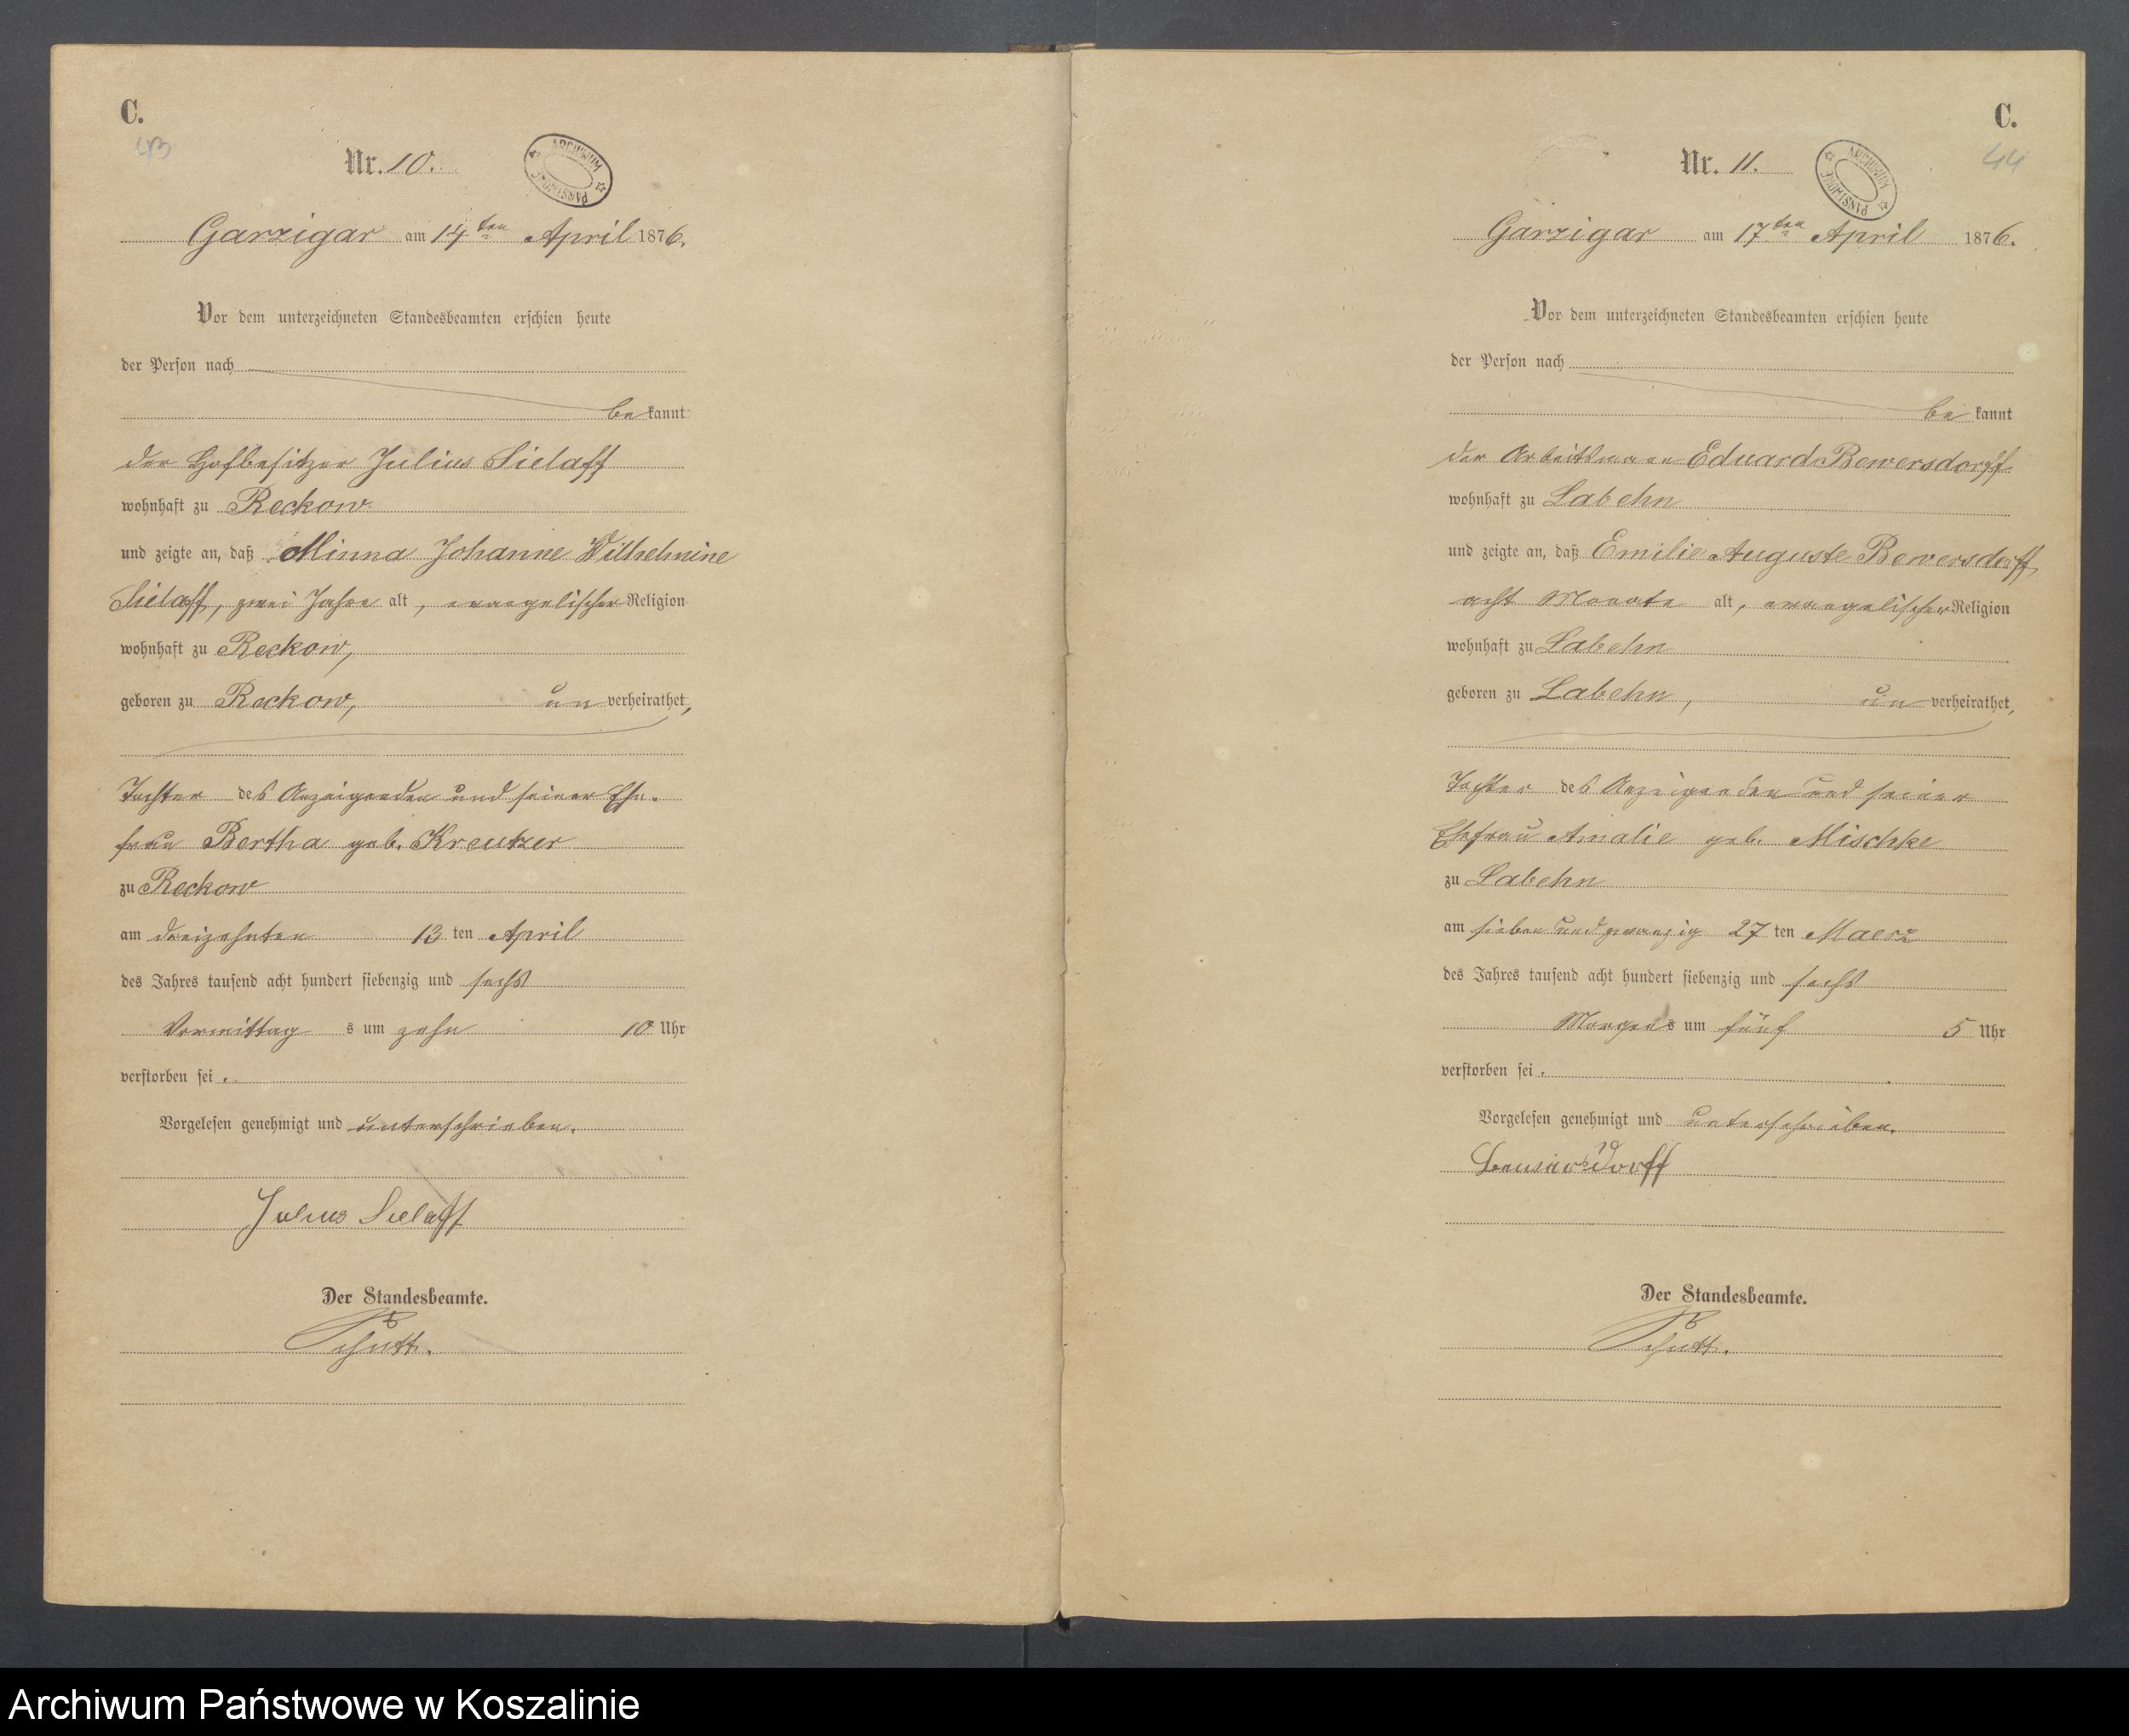 C.
43
Nr. 10.
ARCHIWUM PAŃSTWOWE
Garzigar am 14ten April 1876.
Vor dem unterzeichneten Standesbeamten erschien heute
der Person nach
be kannt
der Hofbesitzer Julius Sielaff
wohnhaft zu Reckow
und zeigte an, daß Minna Johanne Wilhelmine
Sielaff, zwei Jahre alt, evangelischer Religion
wohnhaft zu Reckow,
geboren zu Reckow, un verheirathet,
Tochter des Anzeigenden und seiner Ehe-
frau Bertha geb. Kreutzer
zu Reckow
am dreizehnten 13 ten April
des Jahres tausend acht hundert siebenzig und sechs
Vormittag s um zehn 10 Uhr
verstorben sei.
Vorgelesen genehmigt und unterschrieben.
Julius Sielaff
Der Standesbeamte.
Schutt.
C.
44
Nr. 11.
ARCHIWUM PAŃSTWOWE
Garzigar am 17ten April 1876.
Vor dem unterzeichneten Standesbeamten erschien heute
der Person nach
be kannt
der Arbeitsmann Eduard Bewersdorff
wohnhaft zu Labehn
und zeigte an, daß Emilie Auguste Bewersdorff
acht Monate alt, evangelischer Religion
wohnhaft zu Labehn
geboren zu Labehn, un verheirathet,
Tochter des Anzeigenden und seiner
Ehefrau Amalie geb. Mischke
zu Labehn
am sieben und zwanzig 27 ten Maerz
des Jahres tausend acht hundert siebenzig und sechs
Morgens um fünf 5 Uhr
verstorben sei.
Vorgelesen genehmigt und unterschrieben.
Der Standesbeamte.
Schutt.
Archiwum Państwowe w Koszalinie